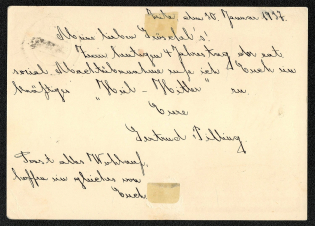 den 30. Januar 1937.
Meine lieben
Zum heutigen 4 Jahrestag der nat.
sozial. Machtübernahme rufe ich Euch ein
kräftiges "Heil - Hitler" zu.
Eure
Gertrud
Sonst alles Wohlauf,
hoffe ein gleiches von
Euch